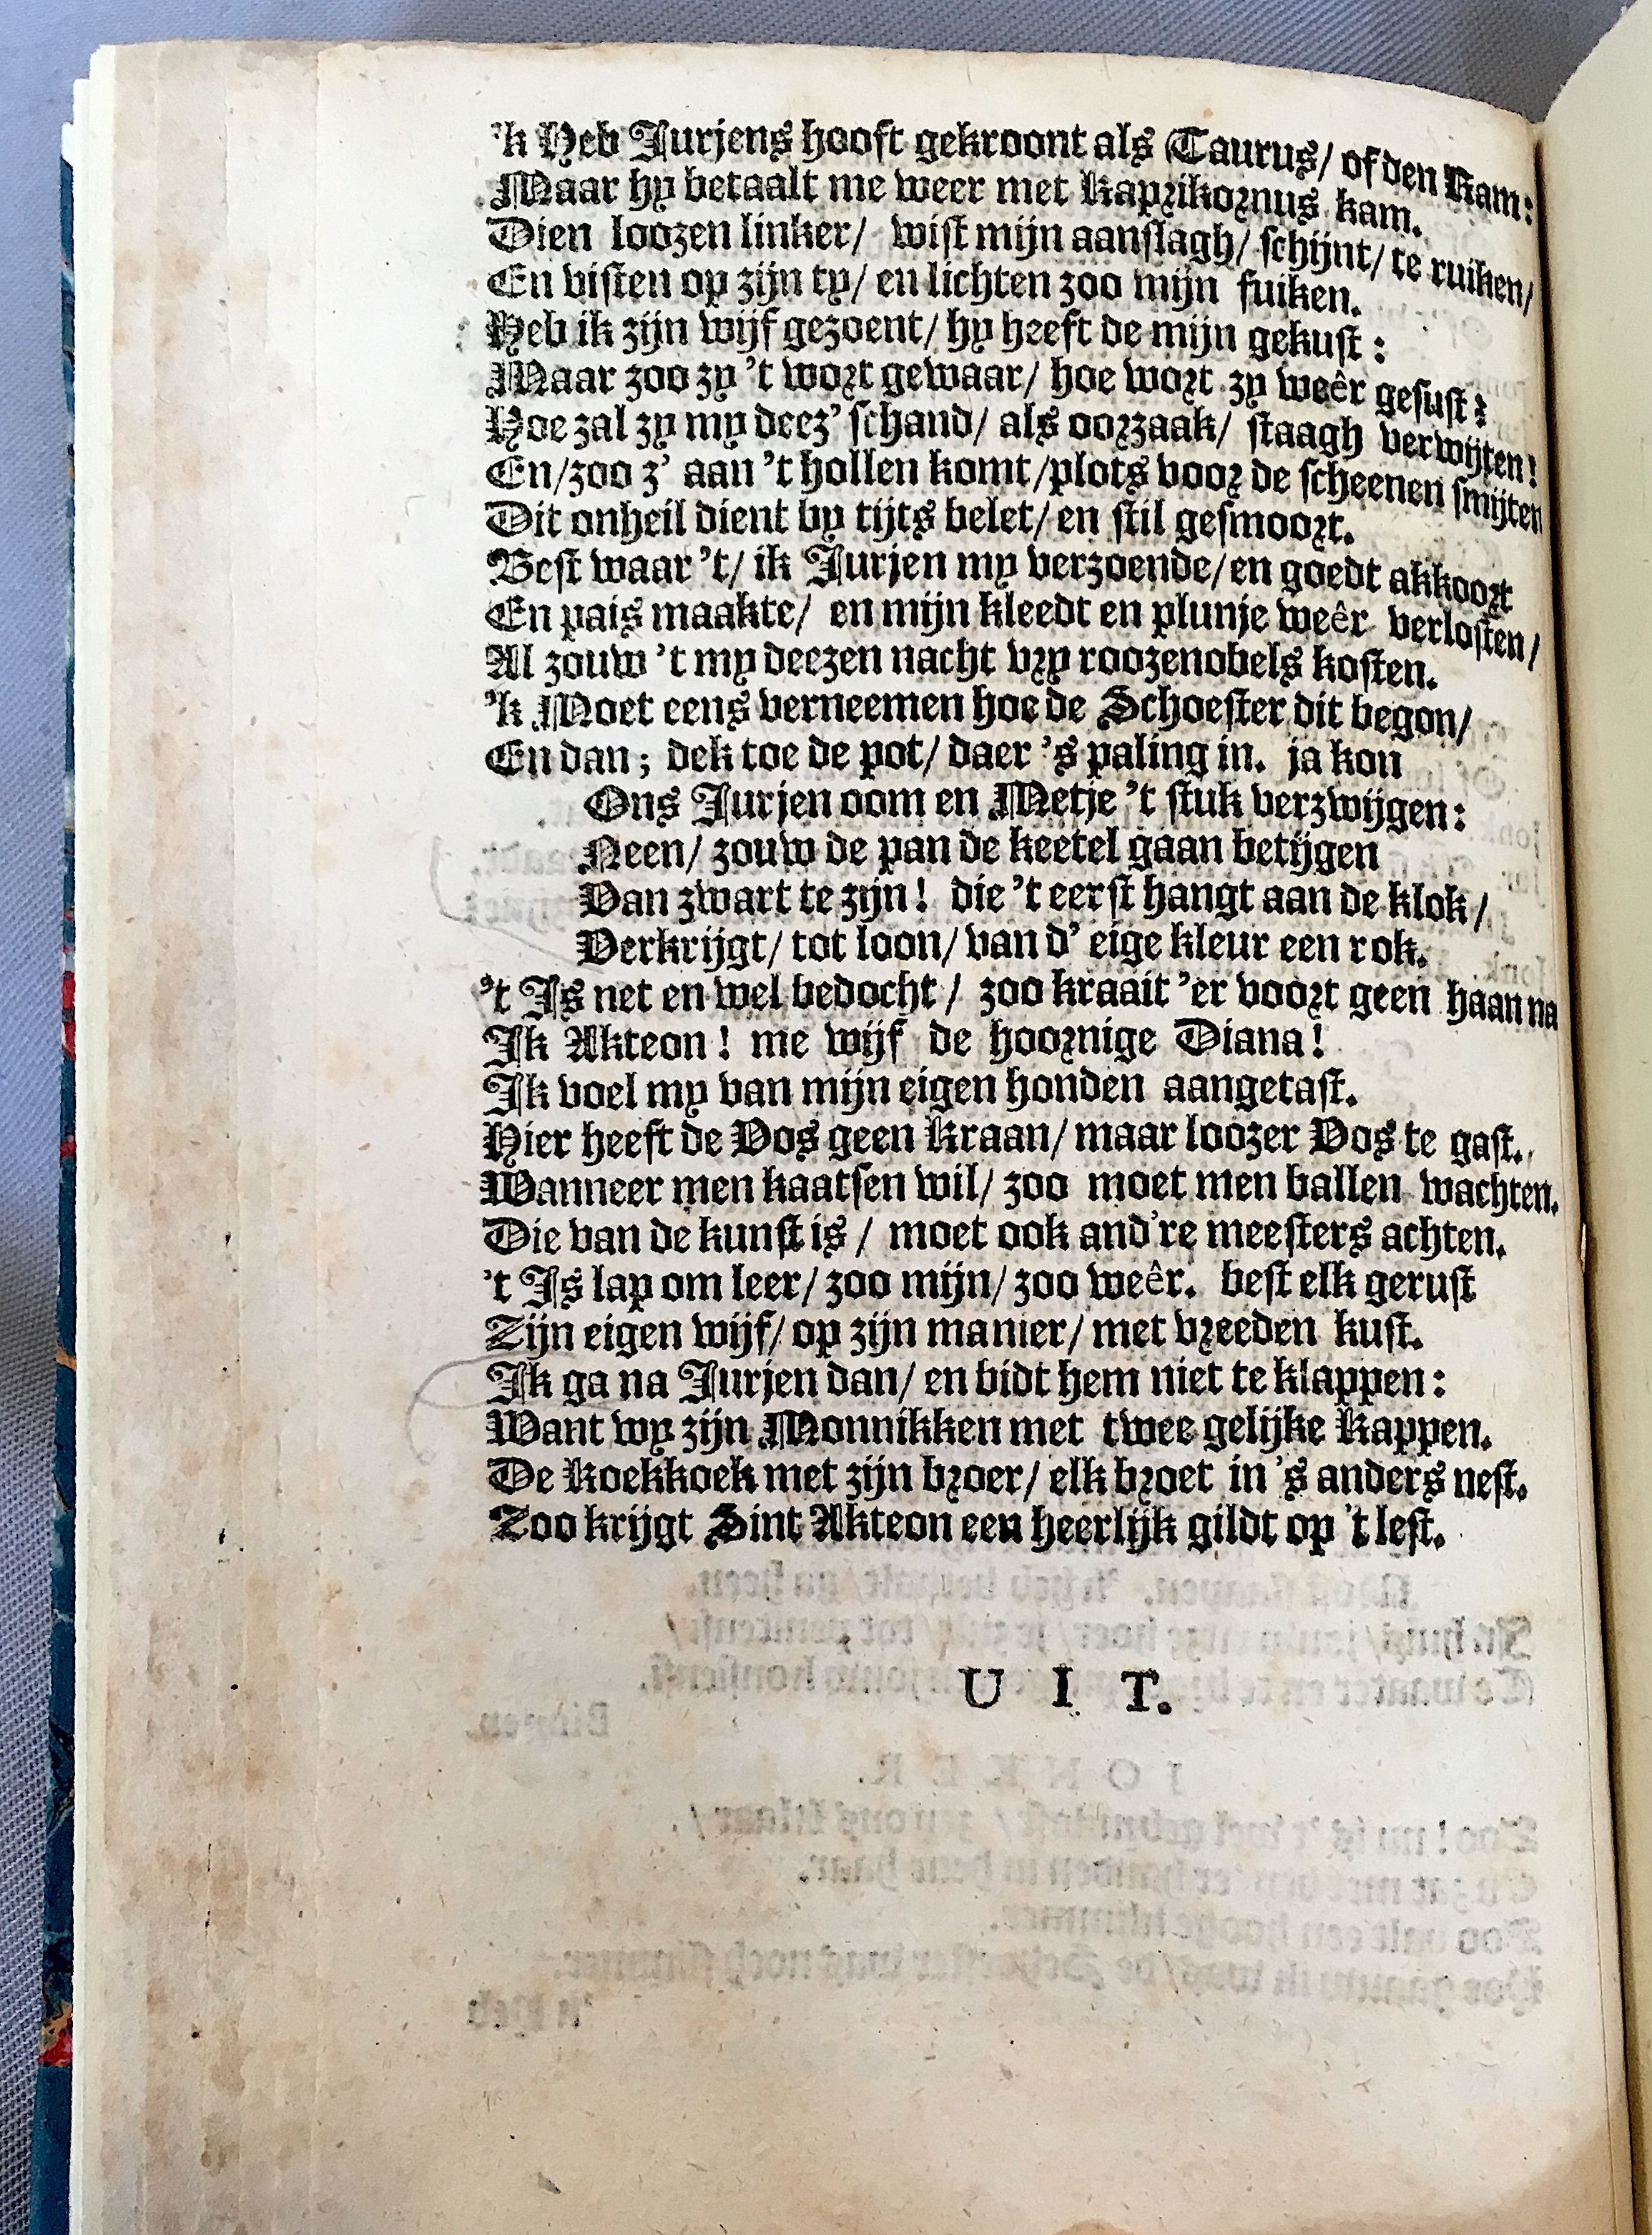 'k Heb Jurjens hooft gekroont als Taurus/ of den Ram:
Maar hy betaalt me weer met Kaprikornus kam.
Dien loozen linker/ wist mijn aanslagh/ schijnt/ te ruiken/
En visten op zijn ty/ en lichten zoo mijn fuiken.
Heb ik zijn wijf gezoent/ hy heeft de mijn gekust:
Maar zoo zy 't wort gewaar/ hoe wort zy weêr gesust?
Hoe zal zy my deez' schand/ als oorzaak/ staagh verwijten!
En/zoo z' aan 't hollen komt/plots voor de scheenen smijten
Dit onheil dient by tijts belet/ en stil gesmoort.
Best waar 't/ ik Jurjen my verzoende/ en goedt akkoort
En pais maakte/ en mijn kleedt en plunje weêr verlosten/
Al zouw 't my deezen nacht vry roozenobels kosten.
'k Moet eens verneemen hoe de Schoester dit begon/
En dan; dek toe de pot/ daer 's paling in. ja kon
Ons Jurjen oom en Metje 't stuk verzwijgen:
Neen/ zouw de pan de keetel gaan betijgen
Van zwart te zijn! die 't eerst hangt aan de klok/
Verkrijgt/ tot loon/ van d' eige kleur een rok.
't Is net en wel bedocht/ zoo kraait 'er voort geen haan na
Ik Akteon! me wijf de hoornige Diana!
Ik voel my van mijn eigen honden aangetast.
Hier heeft de Vos geen Kraan/ maar loozer Vos te gast.
Wanneer men kaatsen wil/ zoo moet men ballen wachten.
Die van de kunst is/ moet ook and're meesters achten.
't Is lap om leer/ zoo mijn/ zoo weêr. best elk gerust
Zijn eigen wijf/ op zijn manier/ met vreeden kust.
Ik ga na Jurjen dan/ en bidt hem niet te klappen:
Want wy zijn Monnikken met twee gelijke Kappen.
De Koekkoek met zijn broer/ elk broet in 's anders nest.
Zoo krijgt Sint Akteon een heerlijk gildt op 't lest.
U I T.